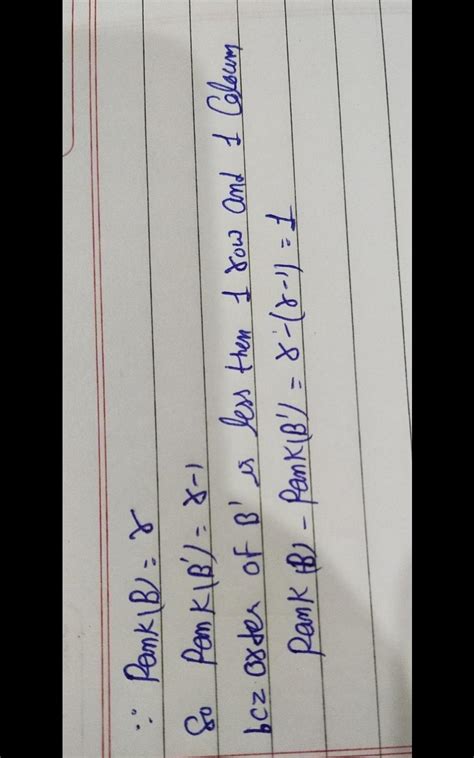 ∵ Rank(B) = r
So Rank(B') = r-1
bcz order of B' is less then 1 row and 1 Coloum
Rank(B) - Rank(B') = r-(r-1) = 1